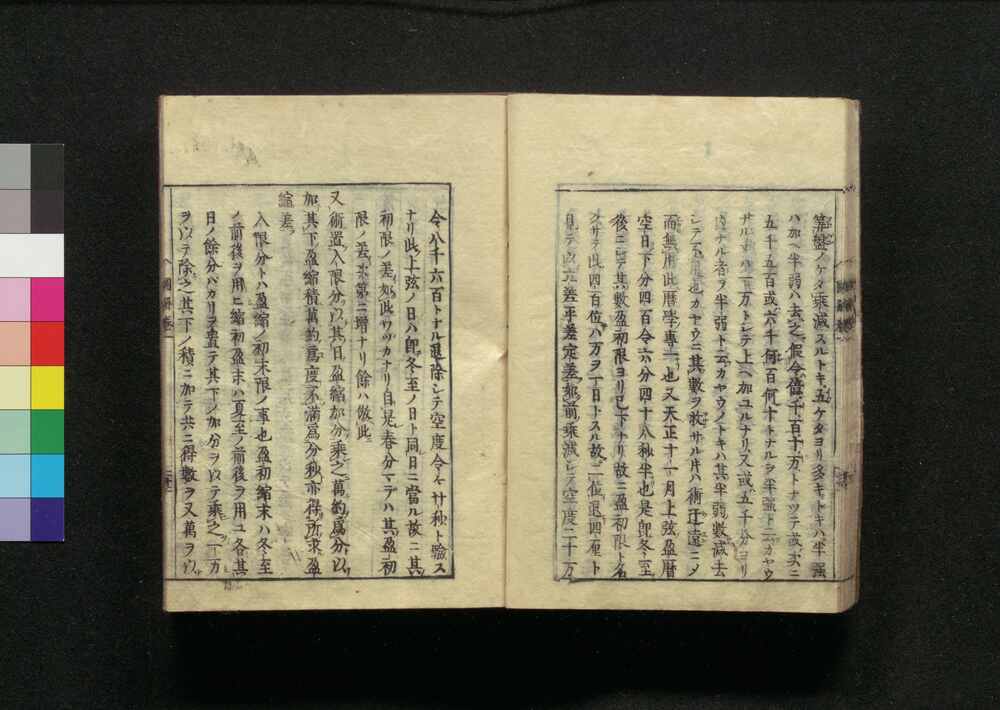 算盤ノケタ乘減スルトキ五ケタヨリ多キトキハ半強
ハ加ヘ半弱ハ去之假令億千百十万トナツテ或次ニ
五千五百或六千何百何十トナルヲ半強ト云カヤウ
ナル時一万トシテ上ヘ加ユルナリ又或五千分ヨリ
内ナル者ヲ半弱ト云カヤウノトキハ其半弱數減去
シテ不用也カヤウニ其數ヲ收サル片ハ術迂遠ニメ
而無用此曆學專一也又天正十一月上弦盈曆
空日下分四百令六分四十八秒半也是卽冬至
後ニテ其數盈初限ヨリ已下ナリ故ニ盈初限ト名
クサテ此四百位ハ万ヲ一日トスル故ニ位退四厘ト
見テ以六差平差定差如前乘減シテ空度二十万
令八千六百トナル退除シテ空度令〻廿秒ト驗ス
ナリ此上弦ノ日ハ卽冬至ノ日ト同日ニ當ル故ニ其
初限ノ差如此ワヅカナリ自是春分マデハ其盈初
限ノ差次第ニ增ナリ餘ハ倣此
又術置入限分以其日盈縮加分乘之萬約爲分以
加其下盈縮積萬約爲度不滿爲分秒亦得所求盈
縮差
入限分トハ盈縮ノ初末限ノ事也盈初縮末ハ冬至
ノ前後ヲ用ヒ縮初盈末ハ夏至ノ前後ヲ用ユ各其
日ノ餘分バカリヲ置テ其下ノ加分ヲ以テ乘之一万
ヲ以テ除之其下ノ積ニ加テ共ニ得數ヲ又萬ヲ以